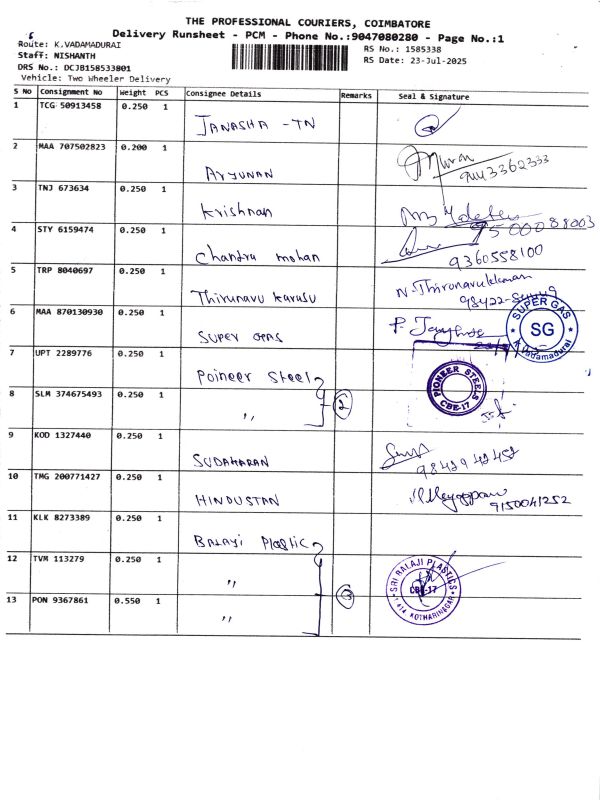 THE PROFESSIONAL COURIERS, COIMBATORE
Delivery Runsheet - PCM - Phone No.:9047080280 - Page No.:1
Route: K.VADAMADURAI
Staff: NISHANTH
DRS No.: DCJB158533801
Vehicle: Two Wheeler Delivery
RS No.: 1585338
RS Date: 23-Jul-2025
S No Consignment No Weight PCS Consignee Details Remarks Seal & Signature
1 TCG 50913458 0.250 1 JANASHA - TN
2 MAA 707502823 0.200 1 ARJUNAN
3 TNJ 673634 0.250 1 Krishnan
4 STY 6159474 0.250 1 Chandru mohan 9360558100
5 TRP 8040697 0.250 1 Thirunavu Karusu N. Thirunavukkarasu
6 MAA 870130930 0.250 1 SUPER GAS SUPER GAS SG K.Vadamadurai
7 UPT 2289776 0.250 1 Poineer Steel PIONEER STEELS CBE-17
8 SLM 374675493 0.250 1 " 2
9 KOD 1327440 0.250 1 SUDAHARAN
10 TMG 200771427 0.250 1 HINDUSTAN 9150041252
11 KLK 8273389 0.250 1 Balaji Plastic
12 TVM 113279 0.250 1 " SRI BALAJI PLASTICS CBE-17 KOTHARINAGAR
13 PON 9367861 0.550 1 " 3